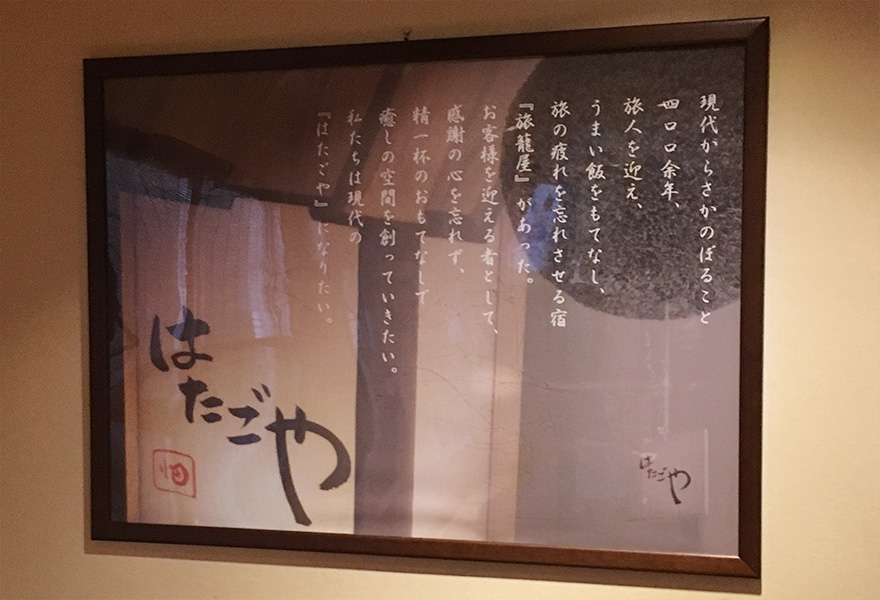 現代からさかのぼること
四〇〇余年、
旅人を迎え、
うまい飯をもてなし、
旅の疲れを忘れさせる宿
『旅籠屋』があった。
お客様を迎える者として、
感謝の心を忘れず、
精一杯のおもてなしで
癒しの空間を創っていきたい。
私たちは現代の
『はたごや』になりたい。
はたごや
はたごや